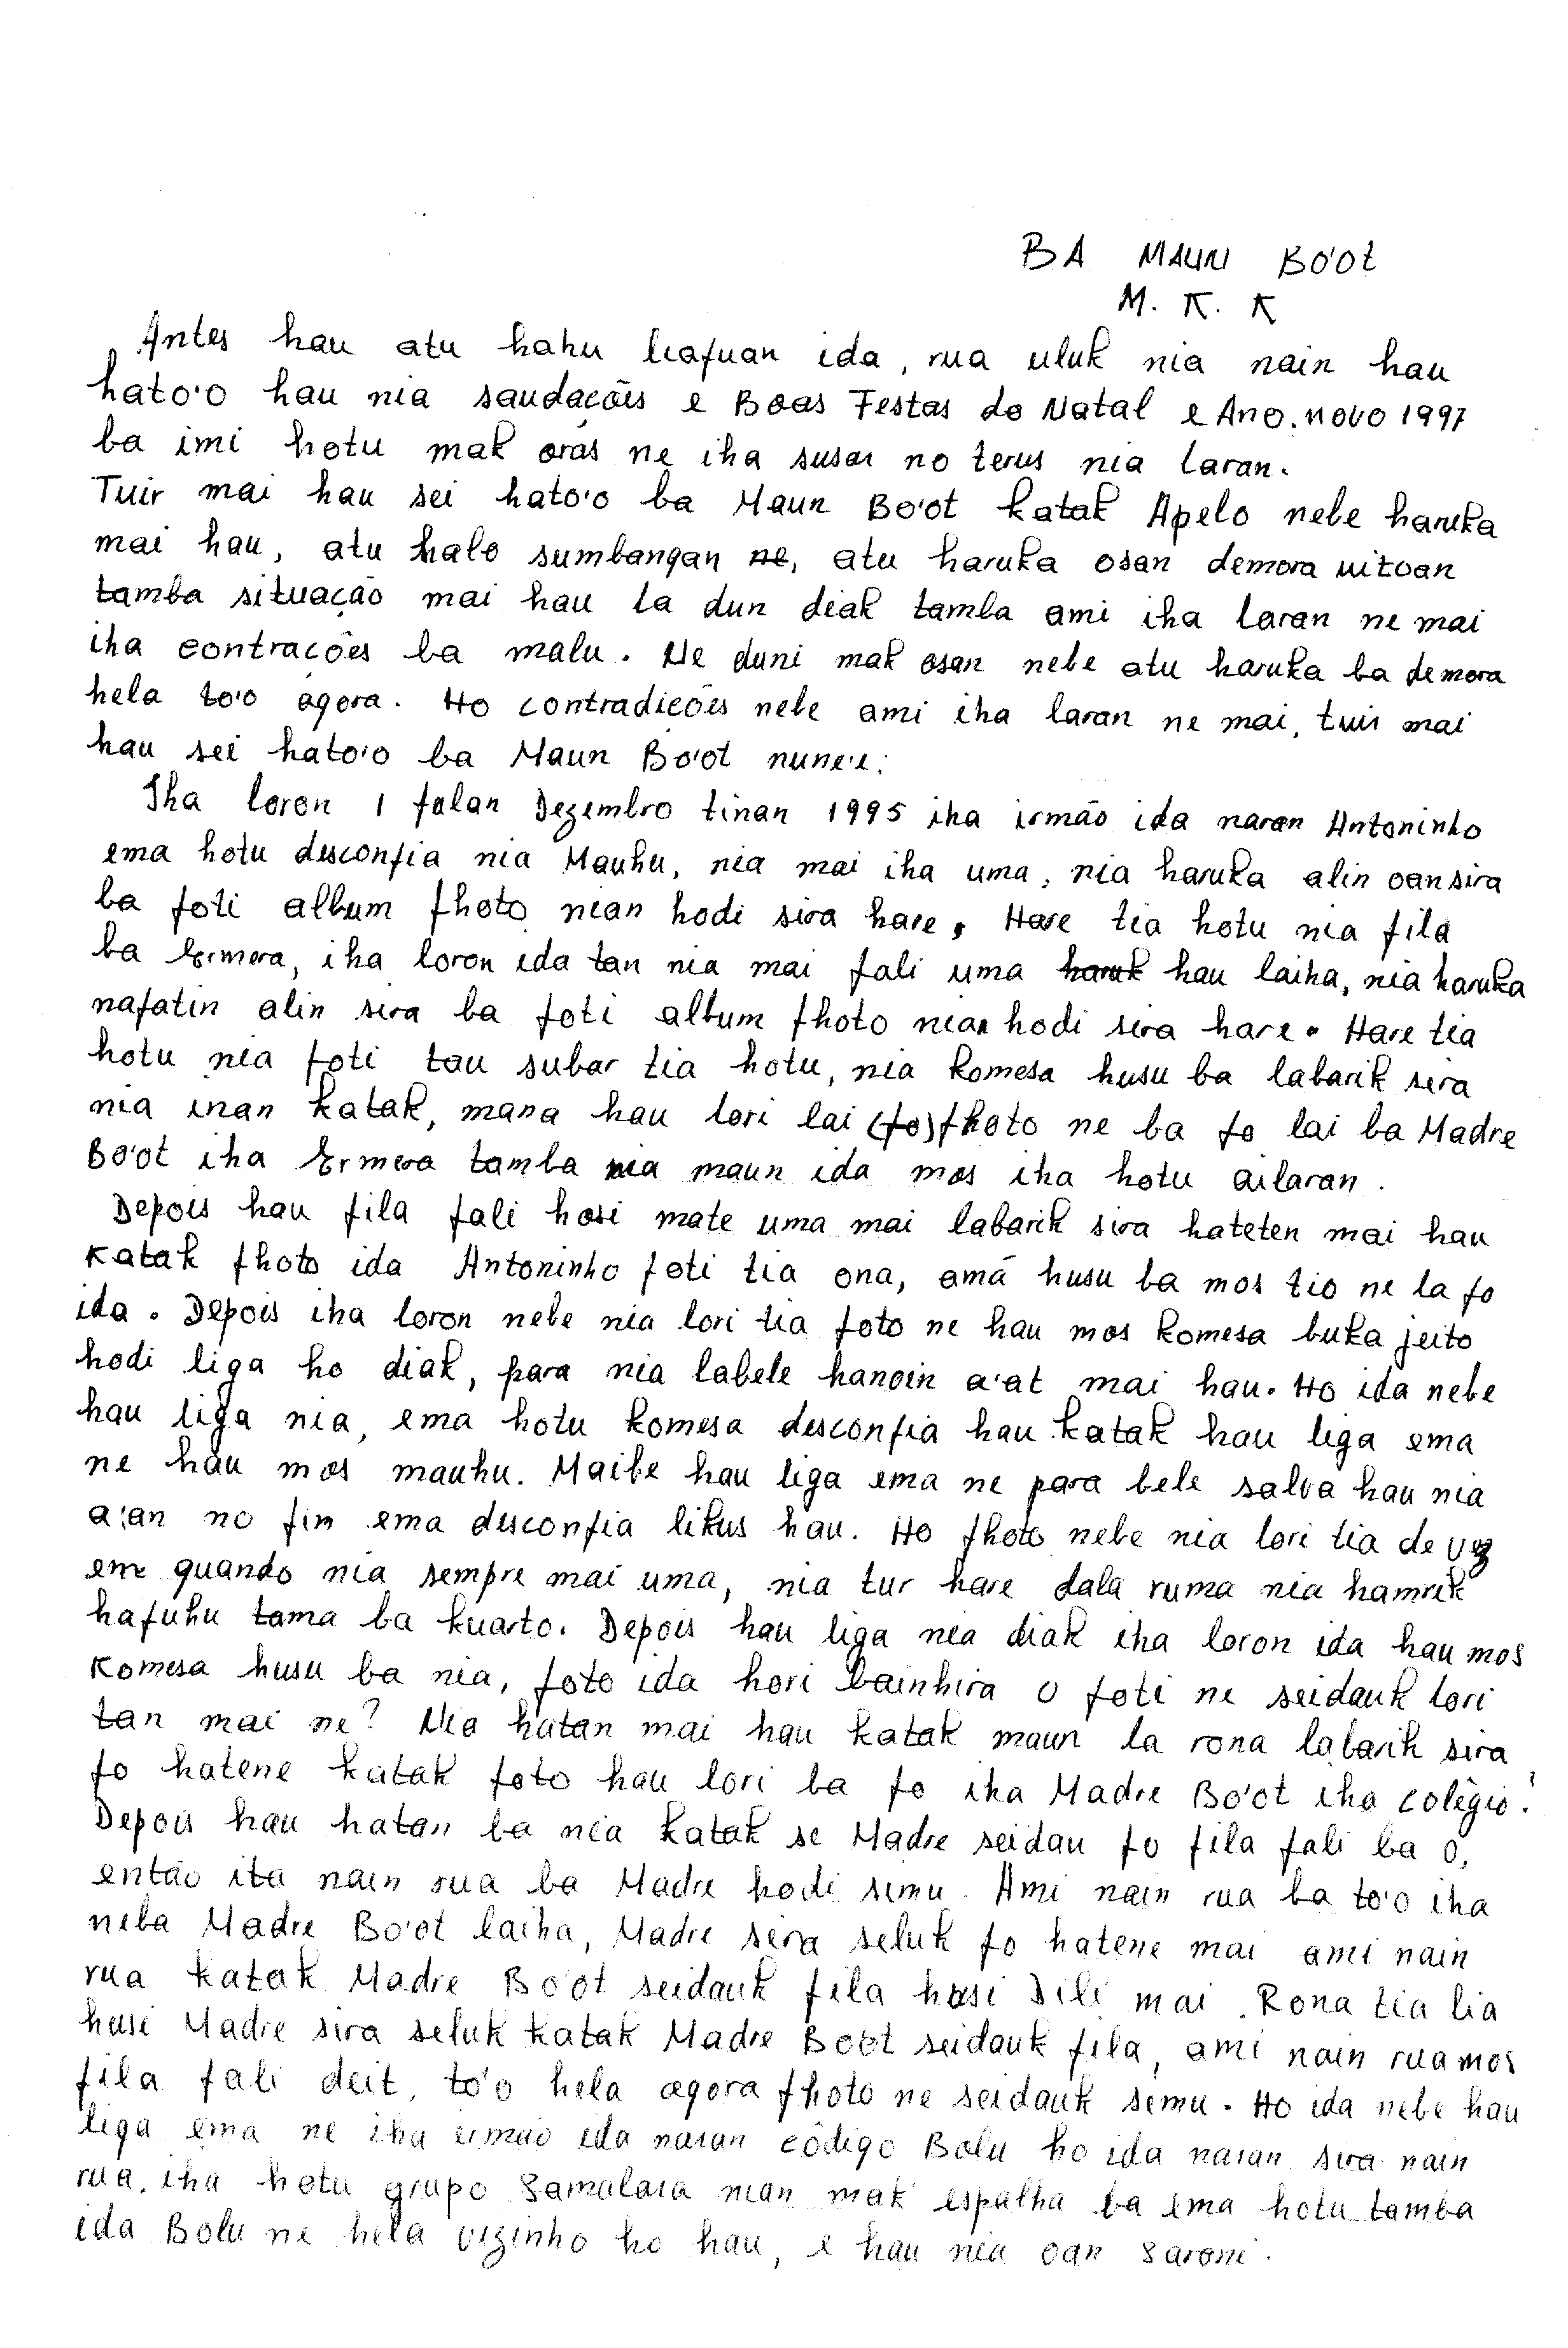 BA MAUN BO'Ot
M. K. K
Antes hau atu hahu liafuan ida, rua uluk nia nain hau
hato'o hau nia saudacões e Boas Festas do Natal e Ano. novo 1997
ba imi hotu mak oras ne iha susar no terus nia laran.
Tuir mai hau sei hato'o ba Maun Bo'ot katak Apelo nebe haruka
mai hau, atu halo sumbangan ne, atu haruka osan demora uitoan
tamba situação mai hau la dun diak tamba ami iha laran ne mai
iha contracões ba malu. Ne duni mak osan nebe atu haruka ba demora
hela to'o agora. Ho contradicões nebe ami iha laran ne mai, tuir mai
hau sei hato'o ba Maun Bo'ot nune'e:
Iha loron 1 fulan Dezembro tinan 1995 iha irmão ida naran Antoninho
ema hotu desconfia nia Mauhu, nia mai iha uma, nia haruka alin oan sira
ba foti album fhoto nian hodi sira hare, Hare tia hotu nia fila
ba Ermera, iha loron ida tan nia mai fali uma haruk hau laiha, nia haruka
nafatin alin sira ba foti album fhoto nian hodi sira hare. Hare tia
hotu nia foti tau subar tia hotu, nia komesa husu ba labarik sira
nia inan katak, mana hau lori lai (fo) fhoto ne ba fo lai ba Madre
Bo'ot iha Ermera tamba nia maun ida mos iha hotu ailaran.
Depois hau fila fali hosi mate uma mai labarik sira hateten mai hau
katak fhoto ida Antoninho foti tia ona, amã husu ba mos tio ne la fo
ida. Depois iha loron nebe nia lori tia foto ne hau mos komesa buka jeito
hodi liga ho diak, para nia labele hanoin a'at mai hau. Ho ida nebe
hau liga nia, ema hotu komesa desconfia hau katak hau liga ema
ne hau mos mauhu. Maibe hau liga ema ne para bele salva hau nia
a'an no fim ema desconfia likus hau. Ho fhoto nebe nia lori tia de vez
em quando nia sempre mai uma, nia tur hare dala ruma nia hamrik
hafuhu tama ba kuarto. Depois hau liga nia diak iha loron ida hau mos
komesa husu ba nia, foto ida hori bainhira o foti ne seidauk lori
tan mai ne? Nia hatan mai hau katak maun la rona labarik sira
fo hatene katak foto hau lori ba fo iha Madre Bo'ot iha colègio?
Depois hau hatan ba nia katak se Madre seidau fo fila fali ba o,
então ita nain rua ba Madre hodi simu. Ami nain rua ba to'o iha
neba Madre Bo'ot laiha, Madre sira seluk fo hatene mai ami nain
rua katak Madre Bo'ot seidauk fila husi Dili mai. Rona tia lia
husi Madre sira seluk katak Madre Boot seidauk fila, ami nain rua mos
fila fali deit, to'o hela agora fhoto ne seidauk simu. Ho ida nebe hau
liga ema ne iha irmão ida naran còdigo Bolu ho ida naran sira nain
rua, iha hotu grupo Samalara nian mak espalha ba ema hotu tamba
ida Bolu ne hela vizinho ho hau, e hau nia oan Sarani.